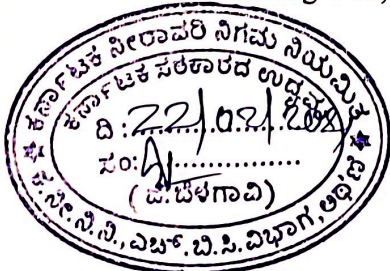 ಕರ್ನಾಟಕ ನೀರಾವರಿ ನಿಗಮ ನಿಯಮಿತ
ಕರ್ನಾಟಕ ಸರಕಾರದ ಉದ್ಯಮ
ದಿ:22/02/
ಸಂ:
(ಜಿ.ಬೆಳಗಾವಿ)
ಕ.ನೀ.ನಿ.ನಿ., ಎಚ್.ಬಿ.ಸಿ.ವಿಭಾಗ,ಅಥಣಿ